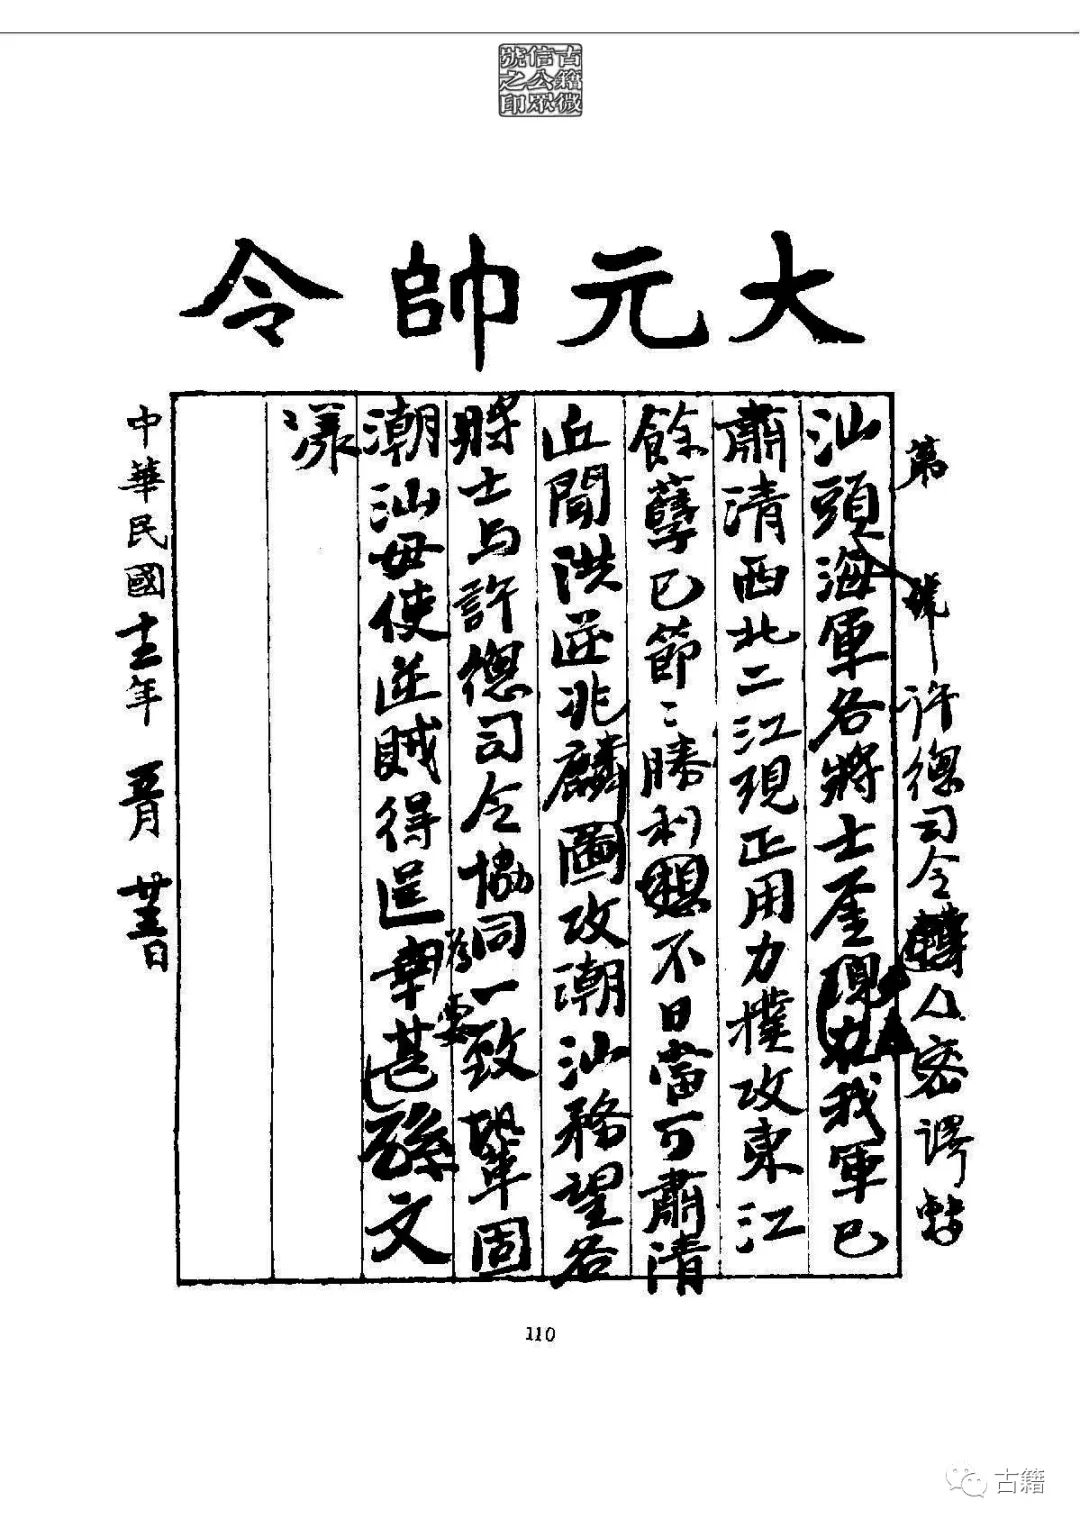 古籍微
信公眾
號之印
大元帥令
第 號 許總司令 密譯轉
汕頭海軍各將士鑒現在我軍已
肅清西北二江現正用力撲攻東江
餘孽已節〻勝利想不日當可肅清
近聞洪逆兆麟圖攻潮汕務望各
將士与許總司令協同一致鞏固
潮汕毋使逆賊得逞幸甚孫文
為要
漾
中華民國十二年 五月 廿三日
110
古籍